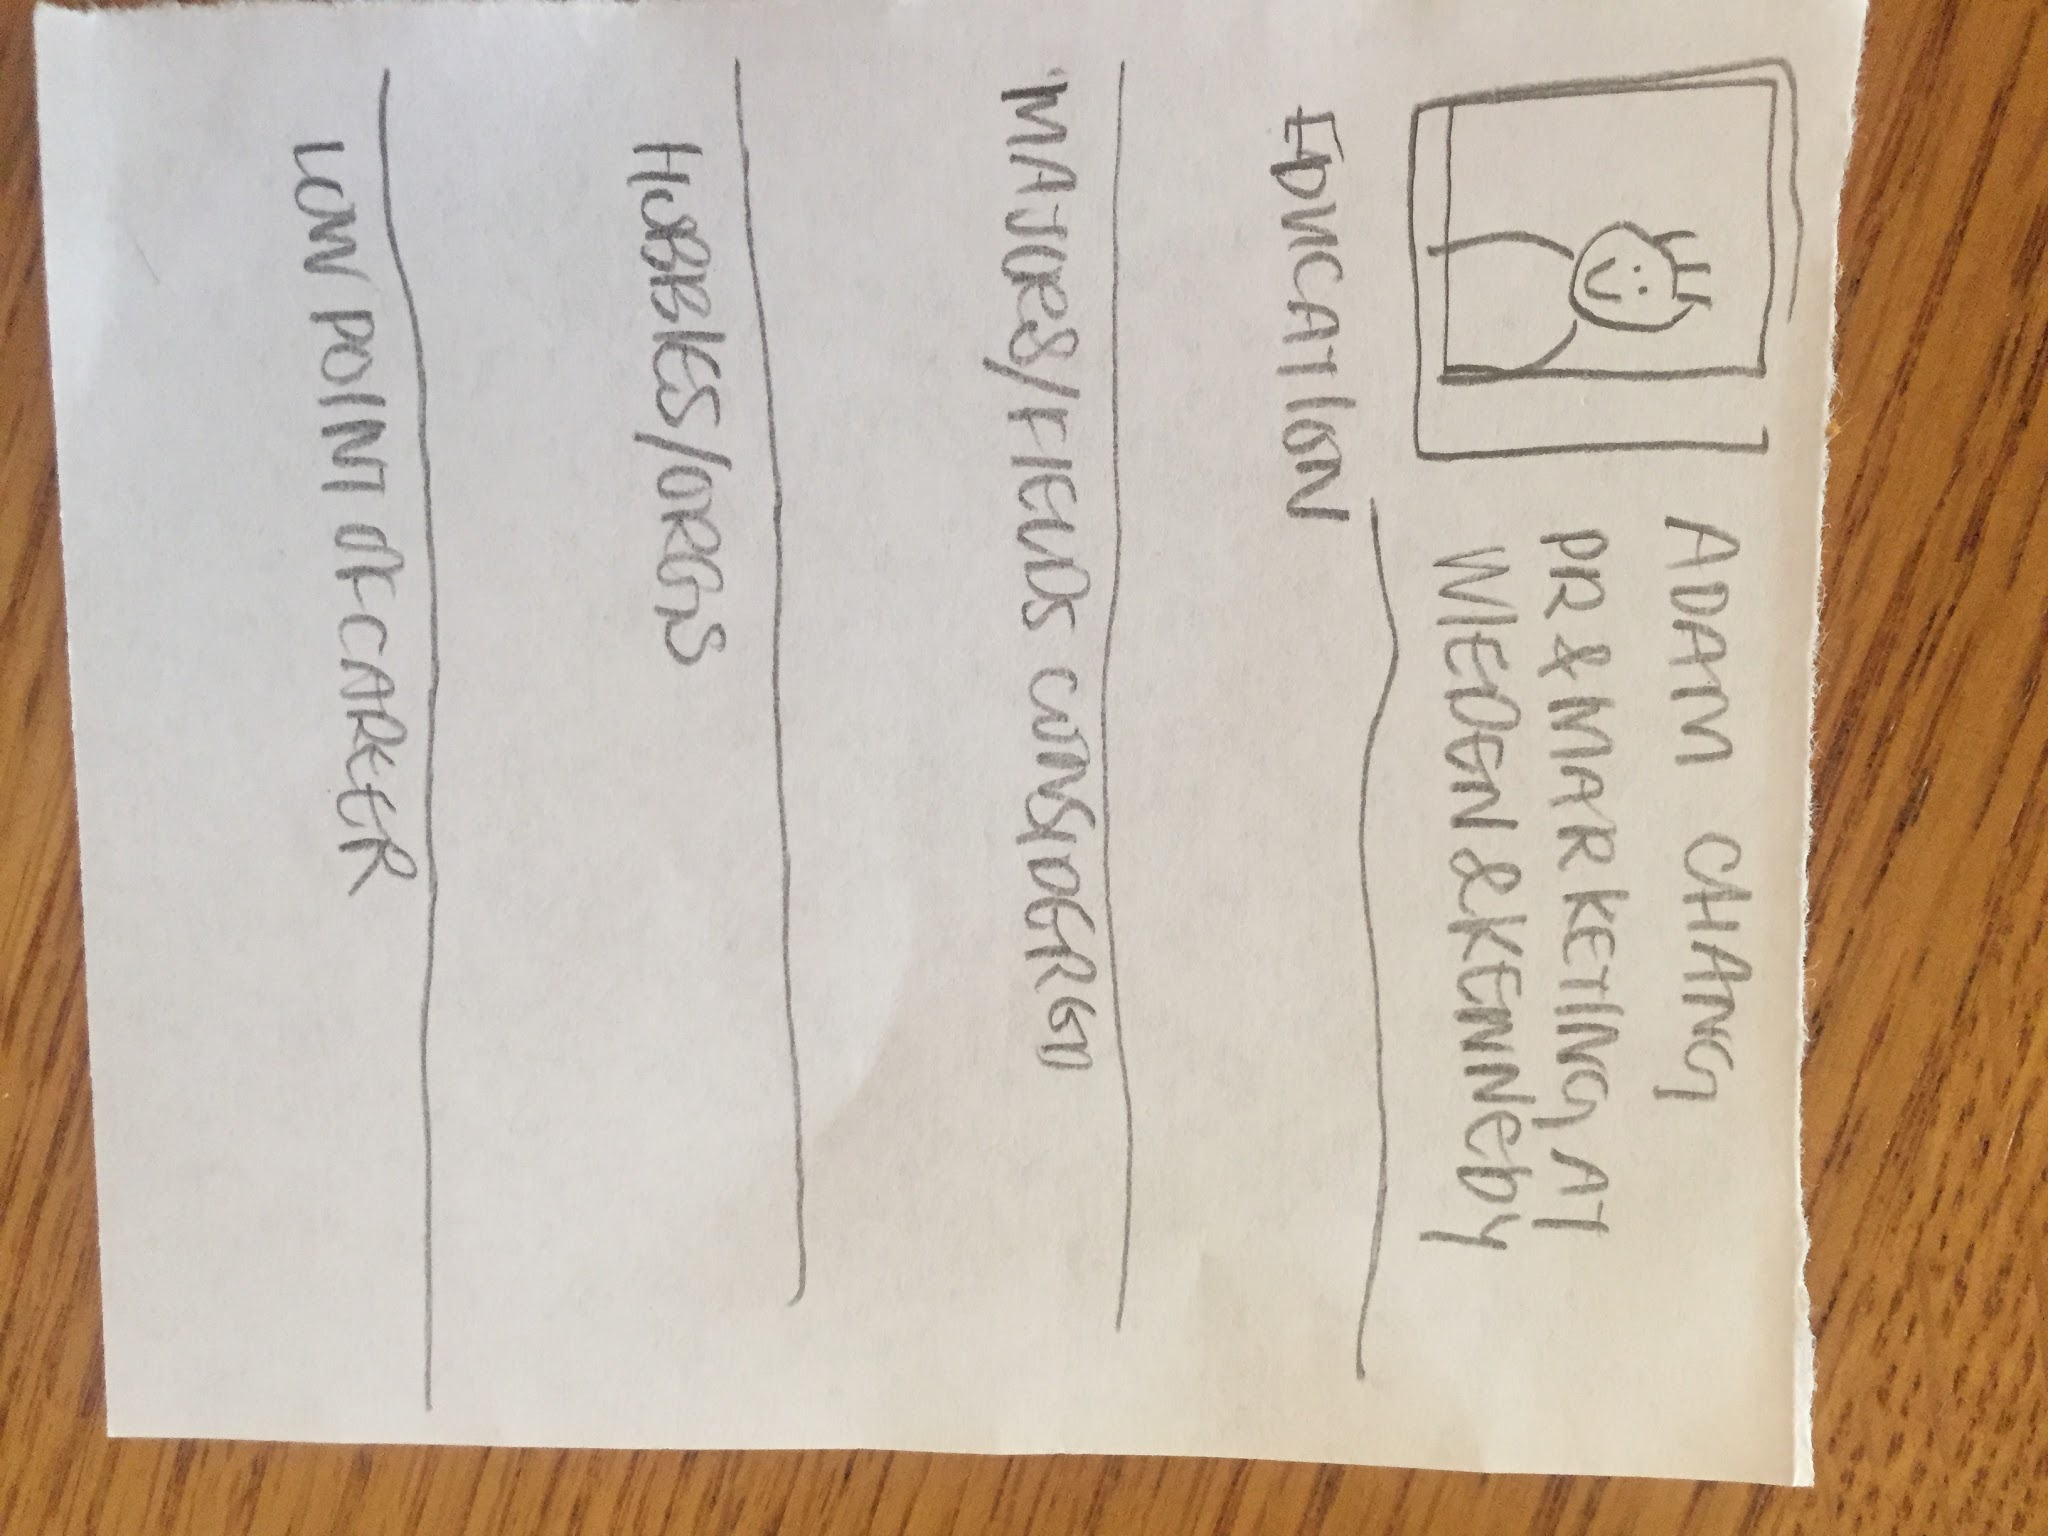 ADAM CHANG
PR & MARKETING AT
WIEDEN & KENNEDY
EDUCATION
MAJORS/FIELDS CONSIDERED
HOBBIES/ORGS
LOW POINT OF CAREER